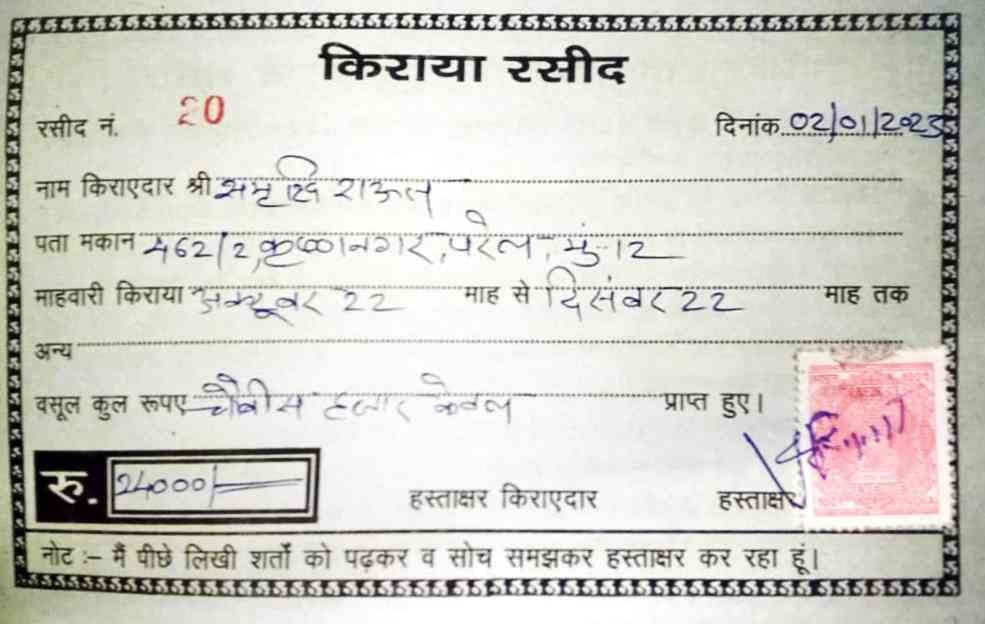 किराया रसीद
रसीद नं. 20 दिनांक 02/01/2023
नाम किराएदार श्री समृद्धि राऊत
पता मकान 462/2, कृष्णानगर, परेल, मुं-12
माहवारी किराया अक्टूबर 22 माह से दिसंबर 22 माह तक
अन्य
वसूल कुल रूपए चौबीस हजार केवल प्राप्त हुए।
रु. 24000/-
हस्ताक्षर किराएदार हस्ताक्षर
नोट :– मैं पीछे लिखी शर्तों को पढ़कर व सोच समझकर हस्ताक्षर कर रहा हूं।